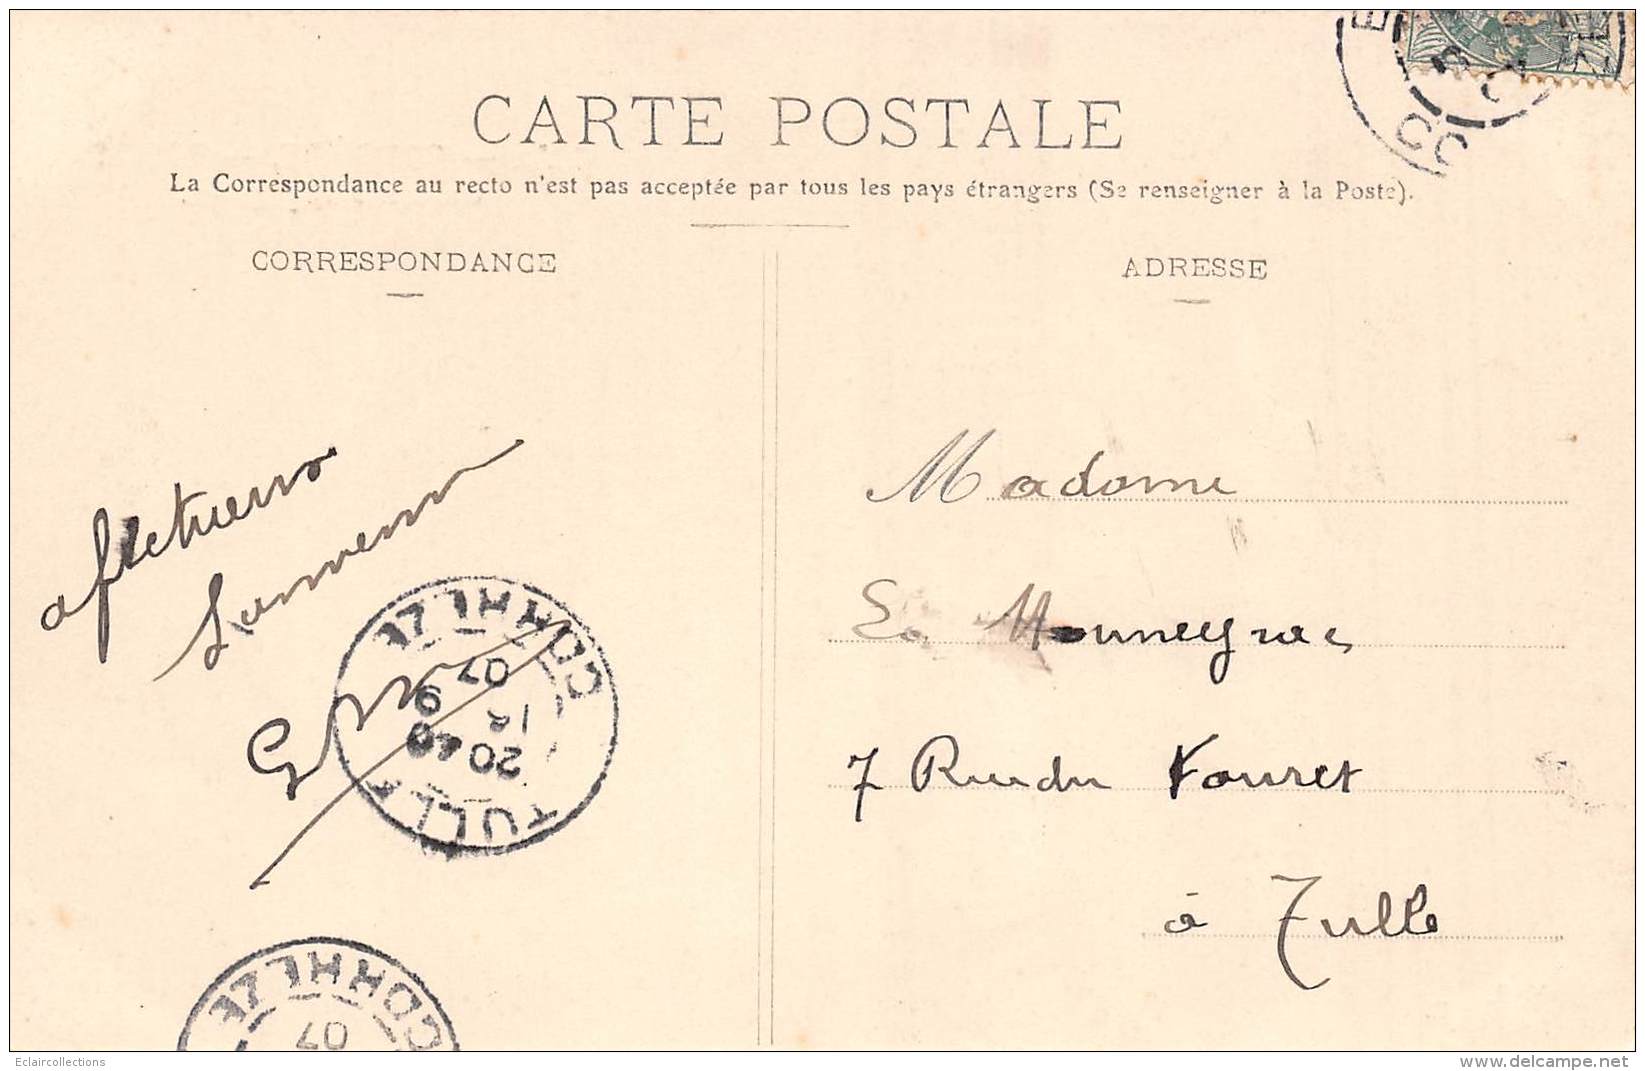 CARTE POSTALE
La Correspondance au recto n'est pas acceptée par tous les pays étrangers (Se renseigner à la Poste).
CORRESPONDANCE
ADRESSE
afectueux
Madame
7 Rue du Fouret
à Tulle
CORRÈZE
07
9
12
20 40
TULLE
CORRÈZE
07
Eclaircollections
www.delcampe.net